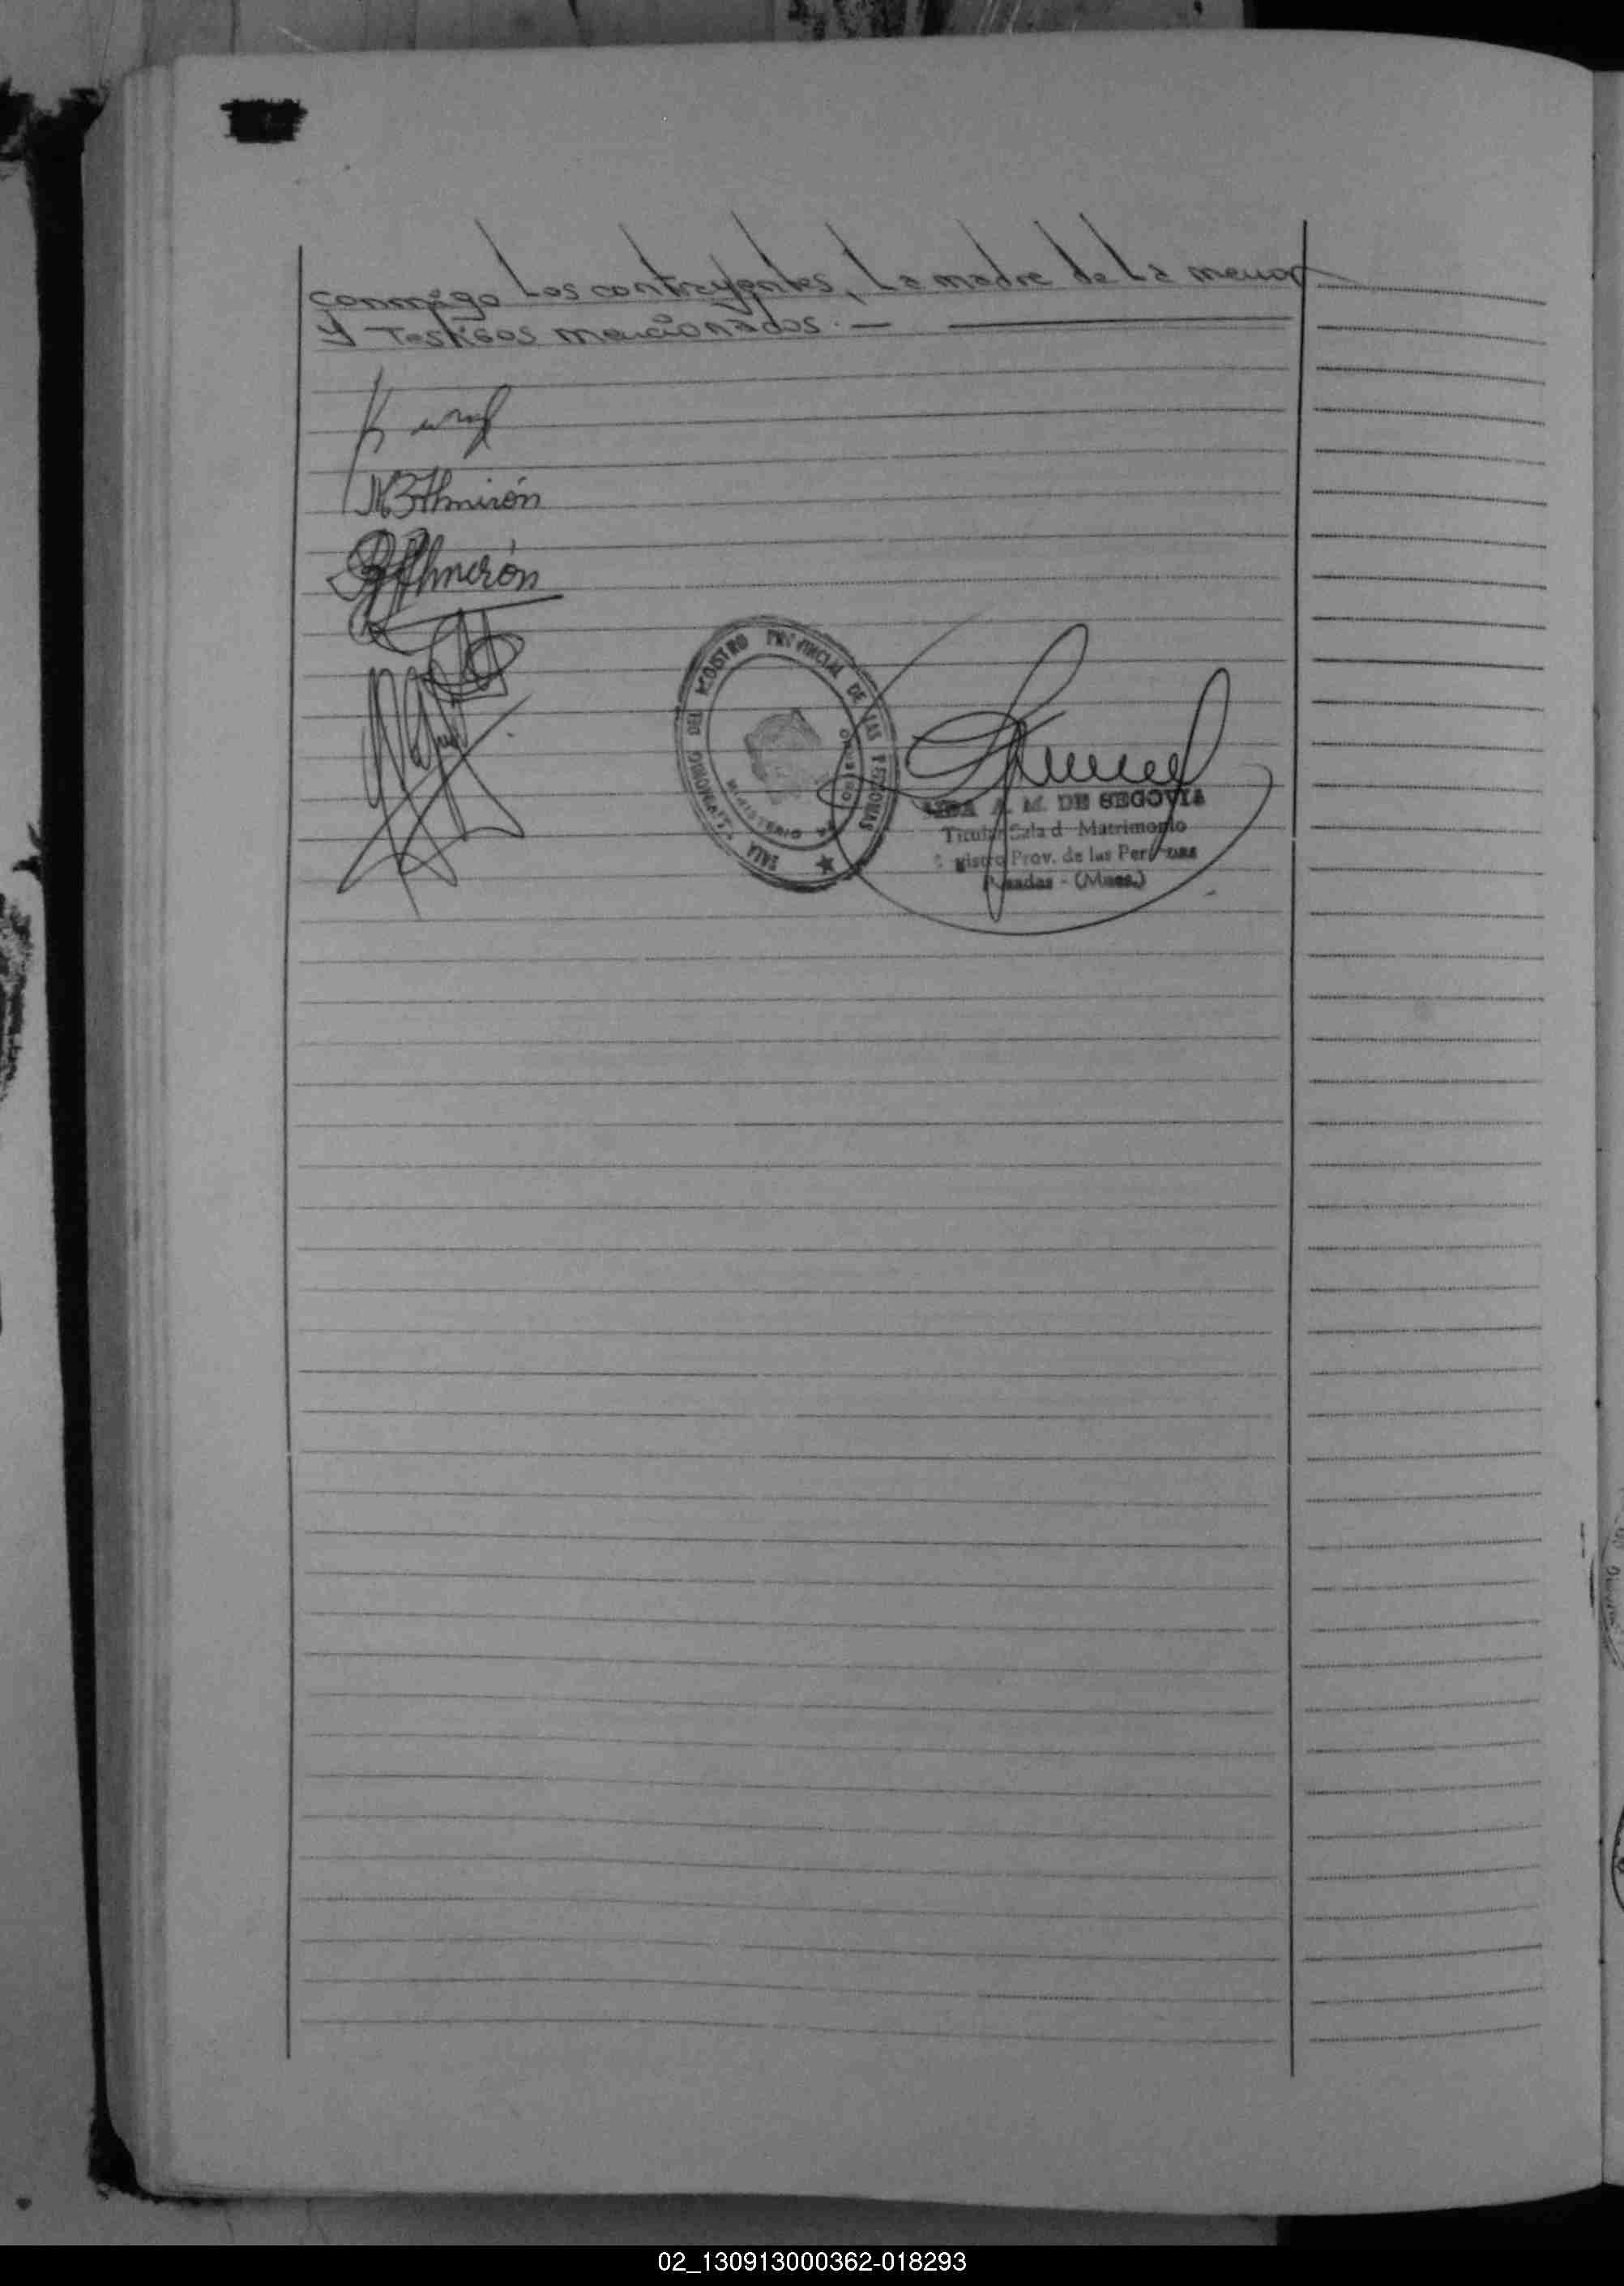 conmigo Los contrayentes, La madre de La menor
Y Testigos mencionados. —
MB Almirón
Almirón
SALA MATRIMONIO DEL REGISTRO PROVINCIAL DE LAS PERSONAS
MINISTERIO DE GOBIERNO
A. M. DE SEGOVIA
Titular Sala d Matrimonio
gistro Prov. de las Personas
Posadas - (Mnes.)
02_130913000362-018293